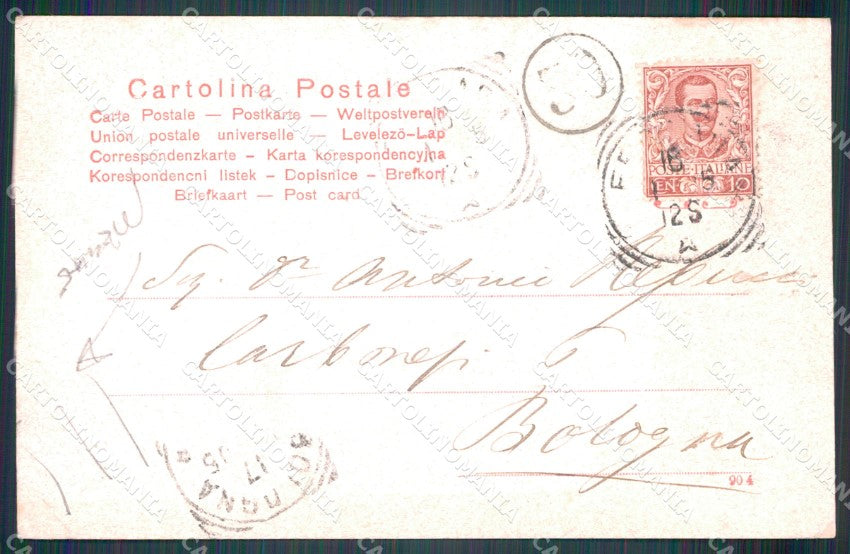 Cartolina Postale
Carte Postale — Postkarte — Weltpostverein
Union postale universelle — Levelezö-Lap
Correspondenzkarte - Karta korespondencyjna
Korespondencni listek - Dopisnice - Brefkort
Briefkaart — Post card
10
16
12S
Sig. Dr Antonio
Bologna
BOLOGNA
17
904
CARTOLINOMANIA